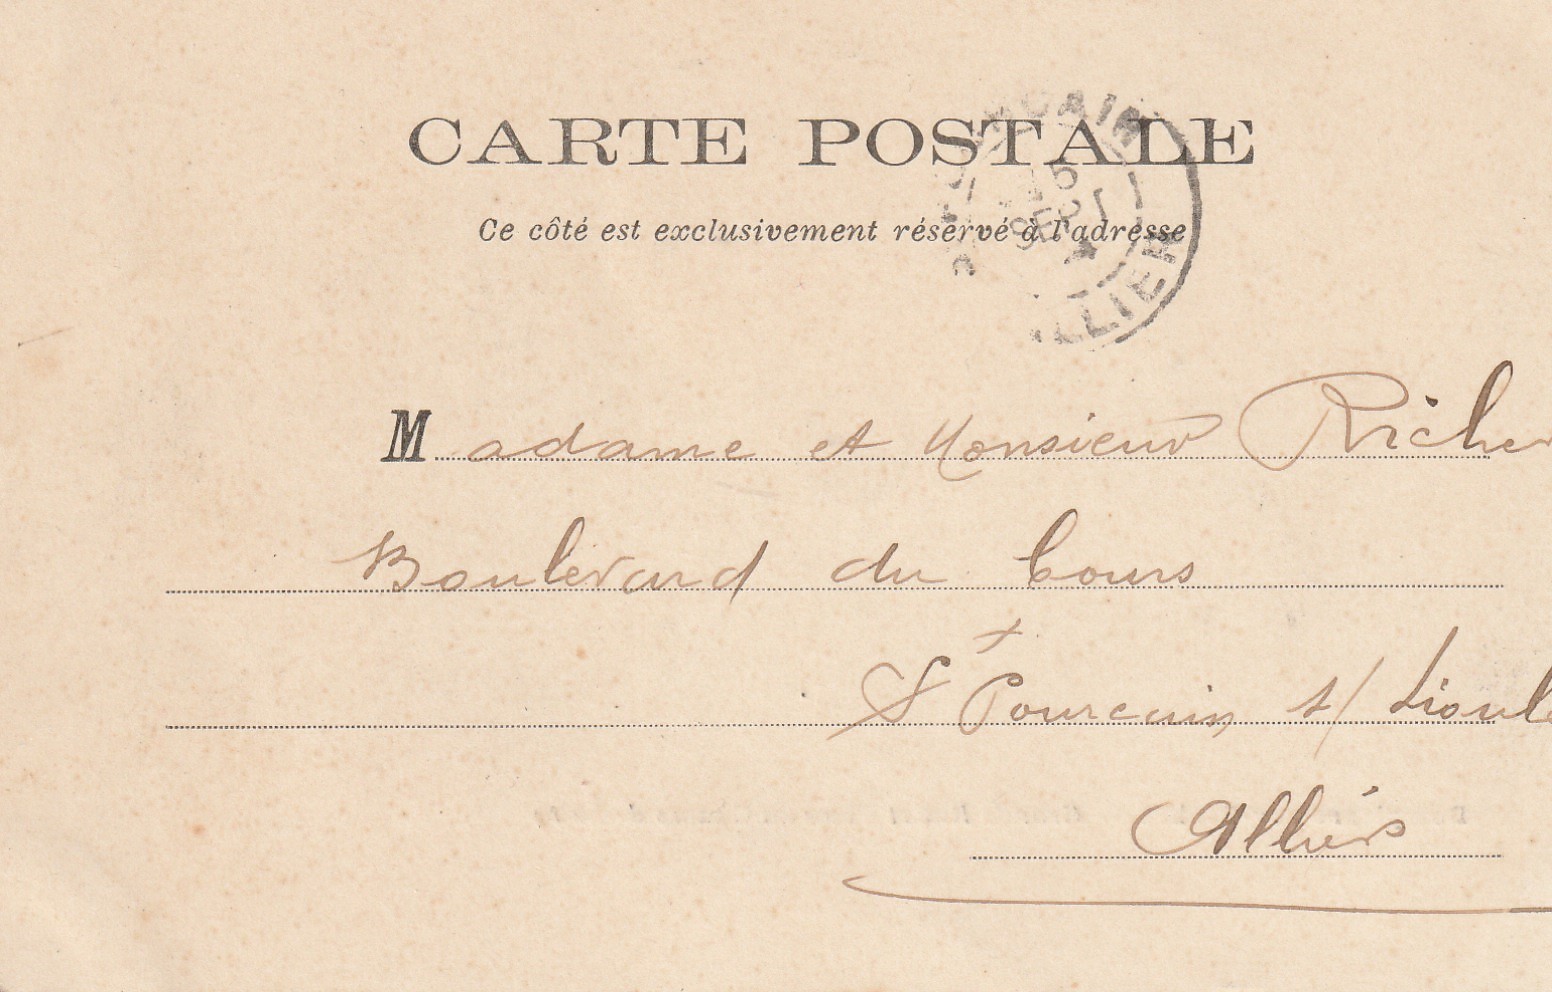 CARTE POSTALE
Ce côté est exclusivement réservé à l'adresse
15
SEPT
ALLIER
Madame et Monsieur Richer
Boulevard du Cours
St Pourcain s/ Sioule
Allier